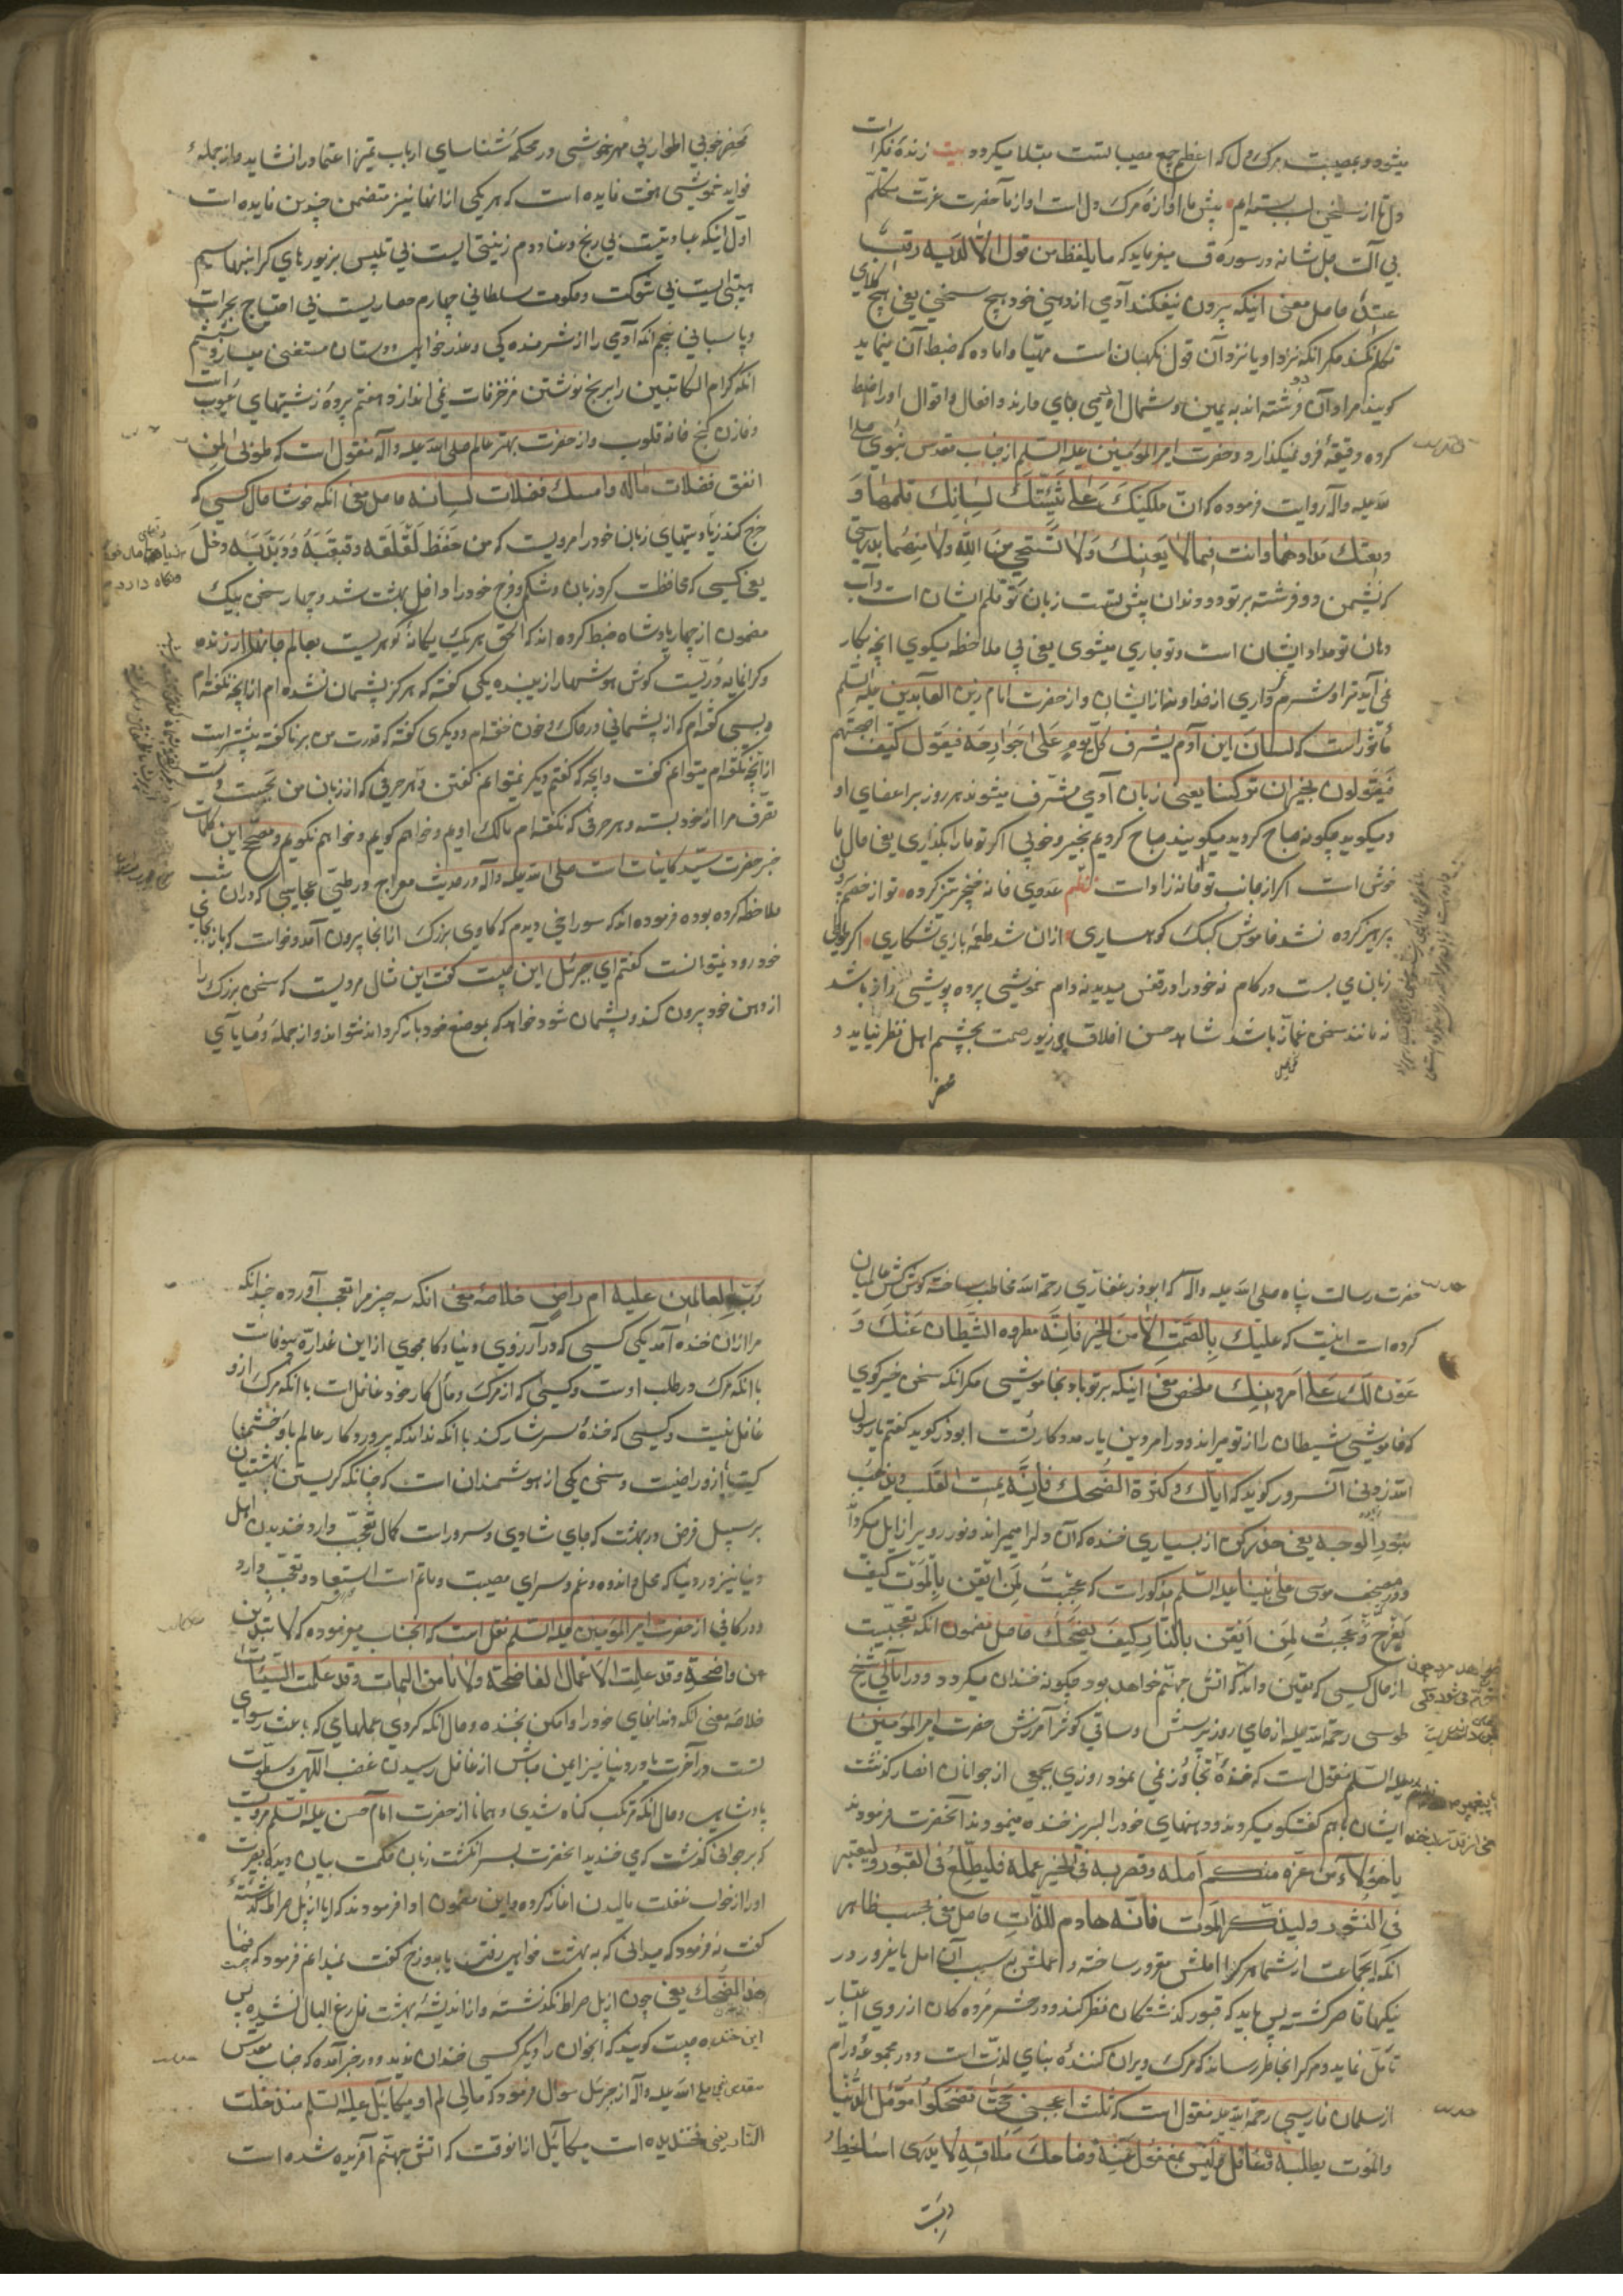 میشود و بمصیبت مرک دل که اعظم جمیع مصیبا تست مبتلا میکردد بیت زنده فکرات
دل تا از سخن لب بسته ایم پیش ما آوازهٔ مرک دل است و از آنحضرت عزت متکلم
بی آلت جل شانه در سوره ق میفرماید که ما یلفظ من قول الا لدیه رقیب
عتید حاصل معنی اینکه بیرون نیفکند آدمی از دهن خود هیچ سخنی یعنی هیچ کلامی
تکلم نکند مکر آنکه نزد او یا نزد آن قول نکهبان است مهیا و اماده که ضبط آن مینماید
کویند مراد آن دو فرشته اند که به یمین و شمال آدمی جای دارند و افعال و اقوال او را ضبط
کرده دقیقهٔ فرو نمیکذارد و حضرت امیر المؤمنین علیه السلم از جناب مقدس نبوی صلی
الله علیه و آله روایت فرموده که ان ملکیک علی ثنیتک لسانک قلمهما و
ریقک مدادهما و انت فیما لا یعنیک و لا تستحی من الله و لا منهما بدرستی
که نشیمن دو فرشته بر تو دو دندان پیش تست زبان تو قلم ایشان است و آب
دهان تو مداد ایشان است و تو جاری میشوی یعنی بی ملاحظه میکوی انچه بکار
نمی آید ترا و شرم نداری از خدا و نه از ایشان و از حضرت امام زین العابدین علیه السلم
مأثور است که لسان ابن آدم یشرف کل یوم علی جوارحه فیقول کیف اصبحتم
فیقولون بخیر ان ترکتنا یعنی زبان آدمی مشرف میشوند هر روز بر اعضای او
و میکوید چکونه صباح کردید میکویند صباح کردیم بخیر و خوبی اکر تو ما را بکذاری یعنی حال ما
خوش است اکر از جانب تو امانه زاد است نظم عدوی خانه خنجر تیز کرده تو از خصم برون
پرهیز کرده نشد خاموش کبک کوهساری ازان شد طعمه باز شکاری اکر طوطی
زبان می بست در کام نه خود را در قفس میدید نه دام خموشی پرده پوشی راز باشد
نه مانند سخن غماز باشد شاهد حسن اخلاق بی زیور صمت بچشم اهل نظر نیاید و
محضر
محضر خوبی اطوار بی مهر خموشی در محکمهٔ شناسای ارباب تمیز اعتماد را نشاید و از جمله
فواید خموشی هفت فایده است که هر یکی از انها نیز متضمن چندین فایده است
اول اینکه عبادتیست بی رنج و عنا دوم زینتی ایست بی تلبس بزیورهای کرانبها سیم
هیبتی ایست بی شوکت و حکومت سلطانی چهارم حصاریست بی احتیاج بحراست
و پاسبانی پنجم انکه آدمی را از شرمنده کی و عذر خواهی دوستان مستغنی میسازد ششم
انکه کرام الکاتبین را برنج نوشتن مزخرفات نمی اندازد هفتم پرده زشتیهای عیوب است
و خازن کنج خانه قلوب و از حضرت بهتر عالم صلی الله علیه و آله منقول است که طوبی لمن
انفق فضلات ماله و امسک فضلات لسانه حاصل معنی انکه خوشا حال کسی که
خرج کند زیادتیهای زبان خود را مرویست که من حفظ لقلقه و قبقبه و ذبذبه دخل
یعنی کسی که محافظت کرد زبان و شکم و فرج خود را داخل بهشت شد و چهار سخن بیک
مضمون از چهار پادشاه ضبط کرده اند که الحق هر یک یکانه کوهریست بعالم جانها ارزنده
و کرانمایه دریست کوش هوشها را زیبنده یکی کفته که هرکز پشیمان نشده ام از آنچه نکفته ام
و بسی کفته ام که از پشیمانی در خاک و خون خفته ام و دیکری کفته که قدرت من بر ناکفته بیشتر است
از آنچه نکفته ام میتوانم کفت و آنچه که کفتم دیکر نمیتوانم نکفتن و هر حرفی که از زبان من بجست دست
تصرف مرا از خود بسته و هر حرفی که نکفته ام مالک اویم و خواهم کویم و خواهم نکویم و مصحح این کلمات
خبر حضرت سید کاینات است صلی الله علیه و آله در حدیث معراج در طی عجایبی که در ان شب
ملاحظه کرده بوده فرموده اند که سوراخی دیدم که کاوی بزرک از انجا بیرون آمد و خواست که باز بجای
خود رود نمیتوانست کفتم ای جبرئیل این چیست کفت این مثال مردیست که سخن بزرک را
از دهن خود بیرون کند و پشیمان شود خواهد که بموضع خود باز کرداند نتواند و از جمله وصایایی
حضرت رسالت پناه صلی الله علیه و اله که ابوذر غفاری رحمة الله مخاطب ساخته کوش کش عالمیان
کرده است اینست که علیک بالصمت الا من الخیر فانه مطرده الشیطان عنک و
عون لک علی امر دینک ملخص معنی اینکه بر تو باد بخاموشی مکر انکه سخن خیر کوی
که خاموشی شیطان را از تو میراند و در امر دین یار مدد کار تست ابوذر کوید کفتم یا رسول
الله زدنی آنسرور کوید که ایاک و کثرة الضحک فانه یمیت القلب و یذهب
بنور الوجه یعنی حذر کن از بسیاری خنده که آن دلرا میمیراند و نور رو را زایل میکرداند
و در صحف موسی علی نبینا علیه السلم مذکورات که عجبت لمن ایقن بالموت کیف
یفرح و عجبت لمن ایقن بالنار کیف یضحک حاصل مضمون انکه تعجبیست
از حال کسی که یقین داند که اتش جهنم خواهد بود چکونه خندان میکردد و در امالی شیخ
طوسی رحمة الله علیه از حامی روز پرسش و ساقی کوثر آمرزش حضرت امیر المؤمنین
علیه السلم منقول است که خنده تجاوز نمی نمود روزی بجمعی از جوانان انصار کذشت
ایشان باهم کفتکو میکردند و دهنهای خود را لبریز خنده مینمودند آنحضرت فرمودند
یا هؤلاء من غره منکم امله و قصر به فی الخیر عمله فلیطلع فی القبور و لیعتبر
فی النشور و لیذکر الموت فانه هادم للذات حاصل معنی بحسب ظاهر
انکه ایجماعت از شما هرکرا املش مغرور ساخته و عملش به سبب آن امل یا غرور در
نیکیها قاصر کشته پس باید که قبور کذشتکان نظر کند و در حشر مرده کان از روی اعتبار
تأمل نماید و مرکرا بخاطر رساند که مرک ویران کنندهٔ بنای لذت است و در مجموعهٔ ورام
از سلمان فارسی رحمة الله علیه منقول است که ثلث اعجبتنی حتی تضحکوا مؤمل الدنیا
و الموت یطلبه و غافل و لیس بمغفول عنه و ضاحک ملاقیه لا یدری اساخط
رب العالمین علیه ام راض خلاصهٔ معنی انکه سه چیز مرا تعجب آورده چندانکه
مرا ازان خنده آمد یکی کسی که در آرزوی دنیا و کامجوی از این غداره بیوفات
با انکه مرک در طلب اوست و کسی که از مرک و مآل کار خود غافل است با انکه مرک از و
غافل نیست و کسی که خندهٔ سرشار کند با انکه نداند که پروردکار عالم باو خشمین
کیست یا ازو راضیست و سخن یکی از هوشمندان است که چنانکه کریستن بهشتیان
بر سبیل فرض در بهشت که جای شادی و سرور است کمال تعجب دارد خندیدن اهل
دنیا نیز در دنیا که محل اندوه و غم و سرای مصیبت و ماتم است استبعاد و تعجب دارد
و در کافی از حضرت امیر المؤمنین علیه السلم نقل است که انجناب میفرموده که لا تبدین
عن واضحة و قد عملت الاعمال الفاضحة و لا تامن البیات و قد عملت السیئات
خلاصه معنی انکه دندانهای خود را وا مکن بخنده و حال انکه کردی عملهایی که باعث رسوای
تست در آخرت یا در دنیا نیز ایمن مباش از غافل رسیدن غضب الهی و سطوات
پادشاهی و حال انکه مرتکب کناه شدی و همانا از حضرت امام حسن علیه السلم مرویست
که بر جوانی کذشت که می خندید انحضرت بسر انکشت زبان حکمت بیان دیده بصیرت
او را از خواب غفلت مالیدن اغاز کرده و این مضمون ادا فرمودند که ایا از پل صراط کذشتهٔ
کفت نه فرمود که میدانی که به بهشت خواهی رفت یا بدوزخ کفت نمیدانم فرمود که فما
هذا الضحک یعنی چون از پل صراط نکذشته و از اندیشهٔ بهشت فارغ البال نشده پس
این خنده چیست کویند که انجوان را دیکر کسی خندان ندید و در خبر آمده که جناب مقدس
مقدس نبی صلی الله علیه و اله از جبرئیل سوال فرمود که مالی لم ار میکائیل علیه السلم منذ خلقت
النار یعنی نخندیده است میکائیل از انوقت که اتش جهنم آفریده شده است